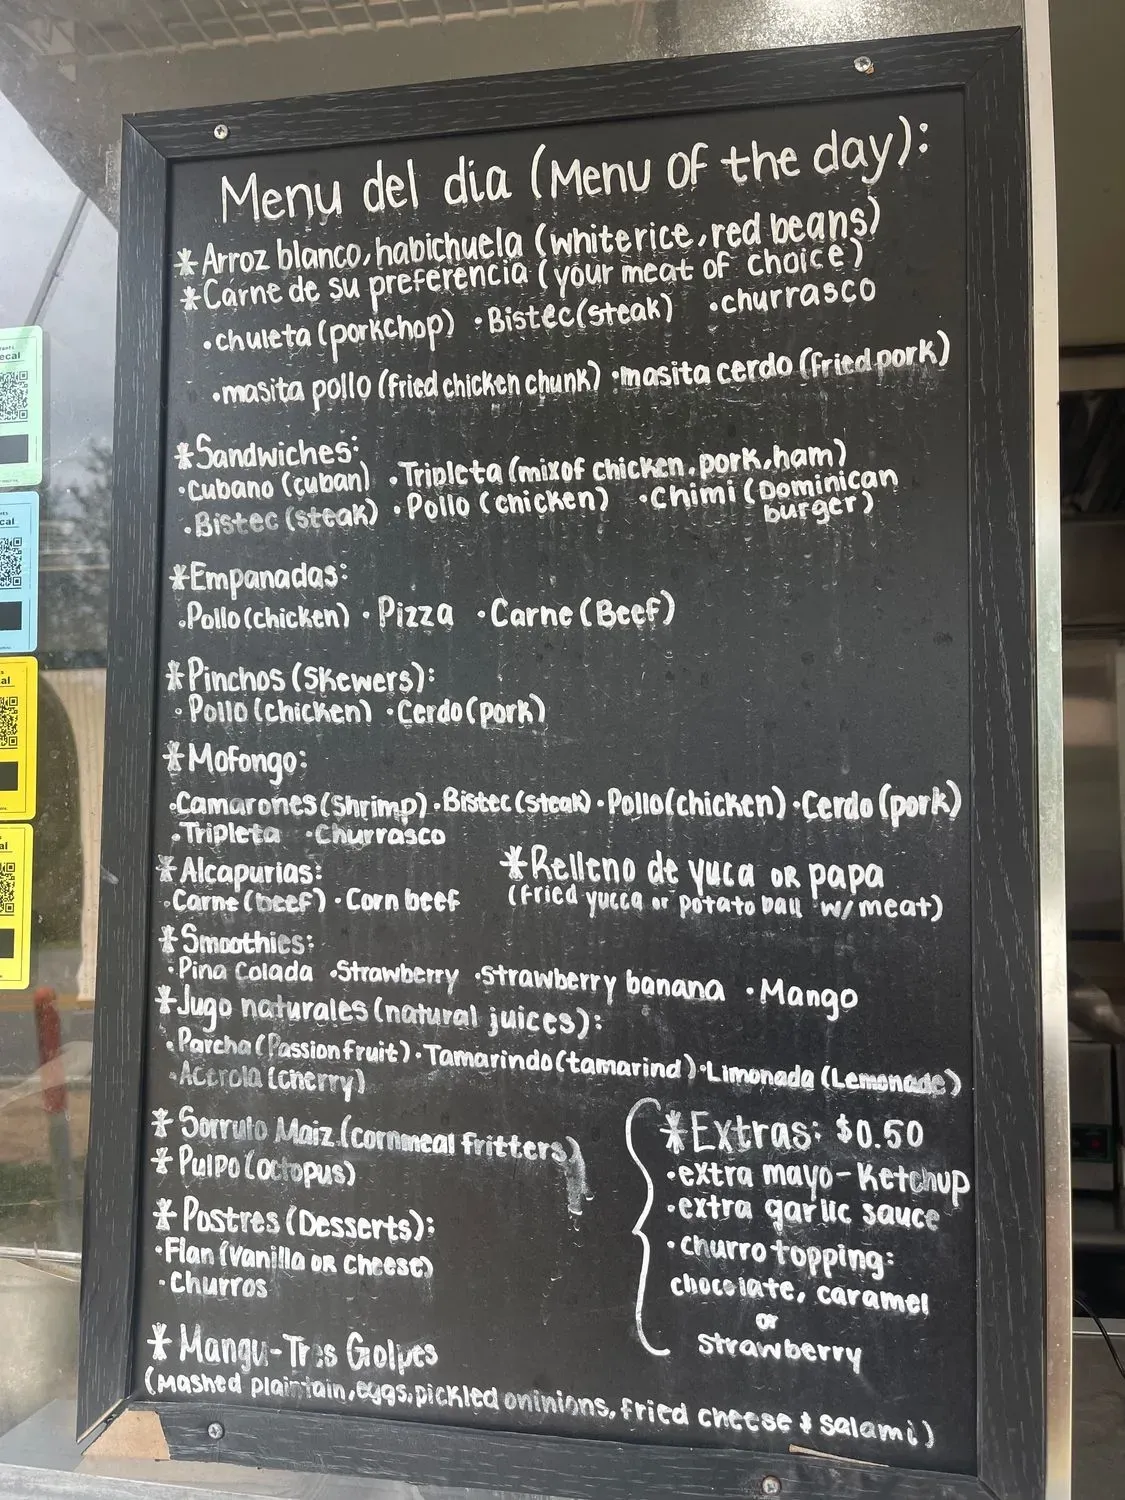 Menu del dia (Menu of the day):
* Arroz blanco, habichuela (white rice, red beans)
* Carne de su preferencia (your meat of choice)
• chuleta (porkchop) • Bistec (steak) • churrasco
• masita pollo (fried chicken chunk) • masita cerdo (fried pork)
* Sandwiches:
• Cubano (cuban) • Tripleta (mix of chicken, pork, ham)
• Bistec (steak) • Pollo (chicken) • Chimi (Dominican burger)
* Empanadas:
• Pollo (chicken) • Pizza • Carne (Beef)
* Pinchos (Skewers):
• Pollo (chicken) • Cerdo (pork)
* Mofongo:
• Camarones (Shrimp) • Bistec (steak) • Pollo (chicken) • Cerdo (pork)
• Tripleta • Churrasco
* Alcapurias:
• Carne (beef) • Corn beef
* Relleno de yuca or papa
(fried yucca or potato ball w/ meat)
* Smoothies:
• Pina Colada • Strawberry • Strawberry banana • Mango
* Jugo naturales (natural juices):
• Parcha (Passion fruit) • Tamarindo (tamarind) • Limonada (Lemonade)
• Acerola (cherry)
* Sorrulo Maiz (cornmeal fritters)
* Pulpo (octopus)
* Postres (Desserts):
• Flan (Vanilla or cheese)
• Churros
* Extras: $0.50
• extra mayo-Ketchup
• extra garlic sauce
• churro topping:
chocolate, caramel
or
strawberry
* Mangu-Tres Golpes
(Mashed plaintain, eggs, pickled oninions, fried cheese & salami)